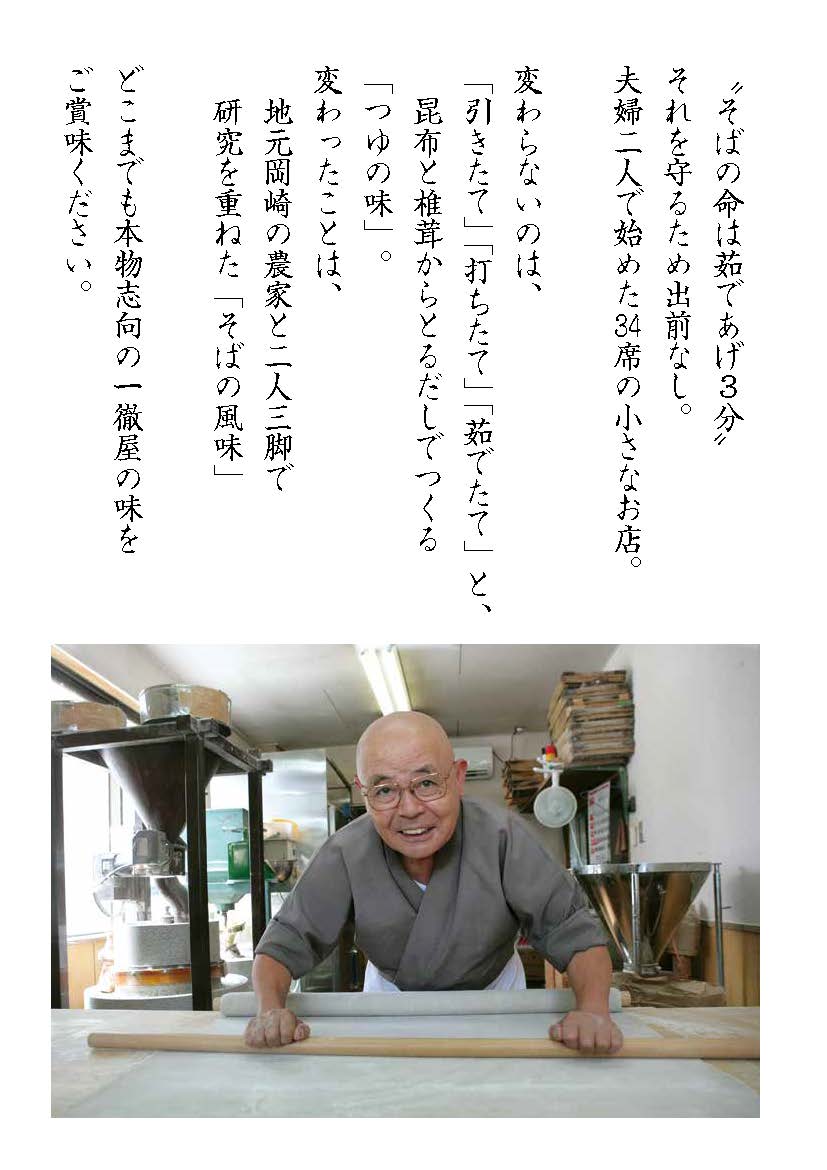 〝そばの命は茹であげ３分〞
それを守るため出前なし。
夫婦二人で始めた34席の小さなお店。
変わらないのは、
「引きたて」「打ちたて」「茹でたて」と、
昆布と椎茸からとるだしでつくる
「つゆの味」。
変わったことは、
地元岡崎の農家と二人三脚で
研究を重ねた「そばの風味」
どこまでも本物志向の一徹屋の味を
ご賞味ください。